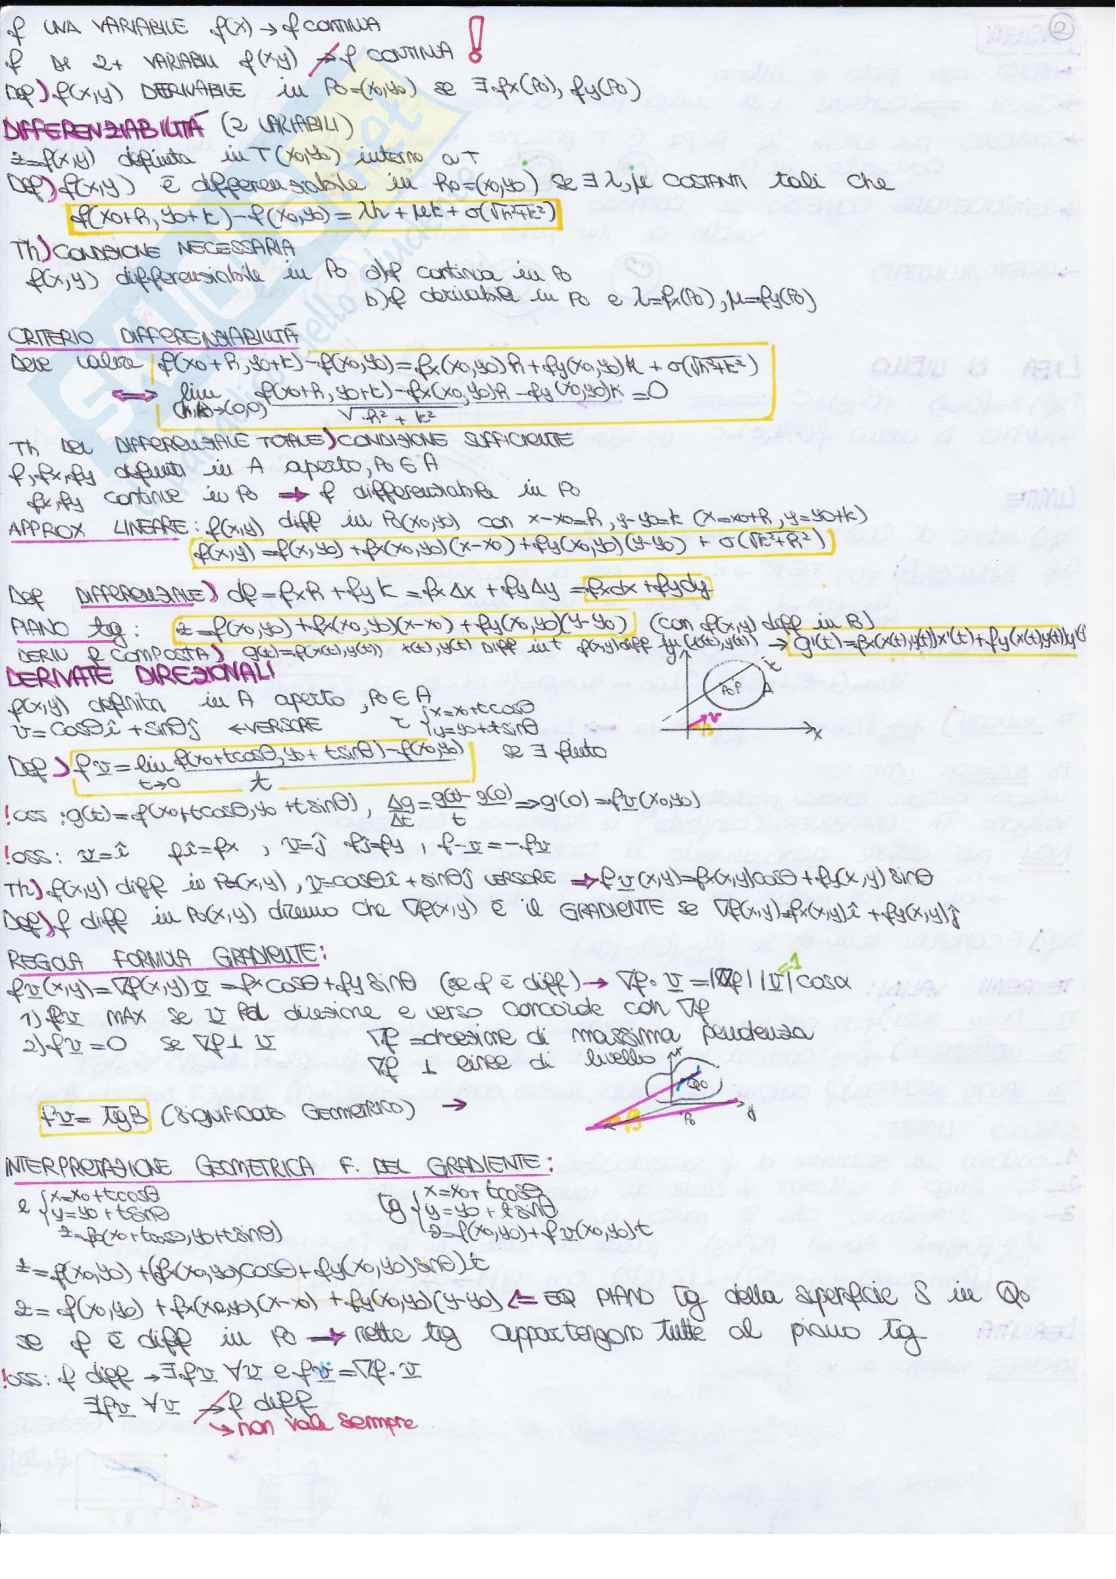 ②
f UNA VARIABILE f(x) → f CONTINUA
f DI 2+ VARIABILI f(x,y) ↛ f CONTINUA !
Def) f(x,y) DERIVABILE in P0=(x0,y0) se ∃ fx(P0), fy(P0)
DIFFERENZIABILITÀ (2 VARIABILI)
z=f(x,y) definita in T (x0,y0) interno a T
Def) f(x,y) è differenziabile in P0=(x0,y0) se ∃ λ,μ COSTANTI tali che
f(x0+h, y0+k)-f(x0,y0)=λh+μk+σ(√h²+k²)
Th) CONDIZIONE NECESSARIA
f(x,y) differenziabile in P0 a) f continua in P0
b) f derivabile in P0 e λ=fx(P0), μ=fy(P0)
CRITERIO DIFFERENZIABILITÀ
Deve valere f(x0+h, y0+k)-f(x0,y0)=fx(x0,y0)h+fy(x0,y0)k+σ(√h²+k²)
⟺ lim (h,k)→(0,0) f(x0+h,y0+k)-fx(x0,y0)h-fy(x0,y0)k / √h²+k² =0
Th DEL DIFFERENZIALE TOTALE) CONDIZIONE SUFFICIENTE
f, fx, fy definiti in A aperto, P0 ∈ A
fx, fy continue in P0 ⇒ f differenziabile in P0
APPROX LINEARE: f(x,y) diff in P0(x0,y0) con x-x0=h, y-y0=k (x=x0+h, y=y0+k)
f(x,y)=f(x0,y0)+fx(x0,y0)(x-x0)+fy(x0,y0)(y-y0)+σ(√k²+h²)
Def DIFFERENZIALE) df=fxh+fyk=fxΔx+fyΔy=fxdx+fydy
PIANO tg: z=f(x0,y0)+fx(x0,y0)(x-x0)+fy(x0,y0)(y-y0) (con f(x,y) diff in P0)
DERIV F COMPOSTA) g(t)=f(x(t),y(t)) x(t),y(t) DIFF in t f(x,y) diff in (x(t),y(t)) → g'(t)=fx(x(t),y(t))x'(t)+fy(x(t),y(t))y'(t)
DERIVATE DIREZIONALI
f(x,y) definita in A aperto, P0 ∈ A
v=cosθi+sinθj ←VERSORE r {x=x0+tcosθ
y=y0+tsinθ
y r P0 P A v θ x
Def) fv=lim t→0 f(x0+tcosθ, y0+tsinθ)-f(x0,y0) / t se ∃ finito
!oss: g(t)=f(x0+tcosθ, y0+tsinθ), Δg/Δt = g(t)-g(0) / t ⇒ g'(0)=fv(x0,y0)
!oss: v=i fi=fx, v=j fj=fy, f-v=-fv
Th) f(x,y) diff in P0(x,y), v=cosθi+sinθj VERSORE ⇒ fv(x,y)=fx(x,y)cosθ+fy(x,y)sinθ
Def) f diff in P0(x,y) diremo che ∇f(x,y) è il GRADIENTE se ∇f(x,y)=fx(x,y)i+fy(x,y)j
REGOLA FORMULA GRADIENTE:
fv(x,y)=∇f(x,y)v=fxcosθ+fysinθ (se f è diff) → ∇f·v=|∇f||v|cosα =1
1) fv MAX se v ha direzione e verso concorde con ∇f
2) fv=0 se ∇f ⊥ v ∇f=direzione di massima pendenza
∇f ⊥ linee di livello
fv=tgβ (SIGNIFICATO GEOMETRICO) →
β Q0 P0 y
INTERPRETAZIONE GEOMETRICA F. DEL GRADIENTE:
e {x=x0+tcosθ
y=y0+tsinθ
z=f(x0+tcosθ, y0+tsinθ)
tg {x=x0+tcosθ
y=y0+tsinθ
z=f(x0,y0)+fv(x0,y0)t
z=f(x0,y0)+(fx(x0,y0)cosθ+fy(x0,y0)sinθ)t
z=f(x0,y0)+fx(x0,y0)(x-x0)+fy(x0,y0)(y-y0) ⇐ EQ PIANO tg della superficie S in Q0
se f è diff in P0 → rette tg appartengono tutte al piano tg
!oss: f diff → ∃fv ∀v e fv=∇f·v
∃fv ∀v ↛ f diff
↳ non vale sempre